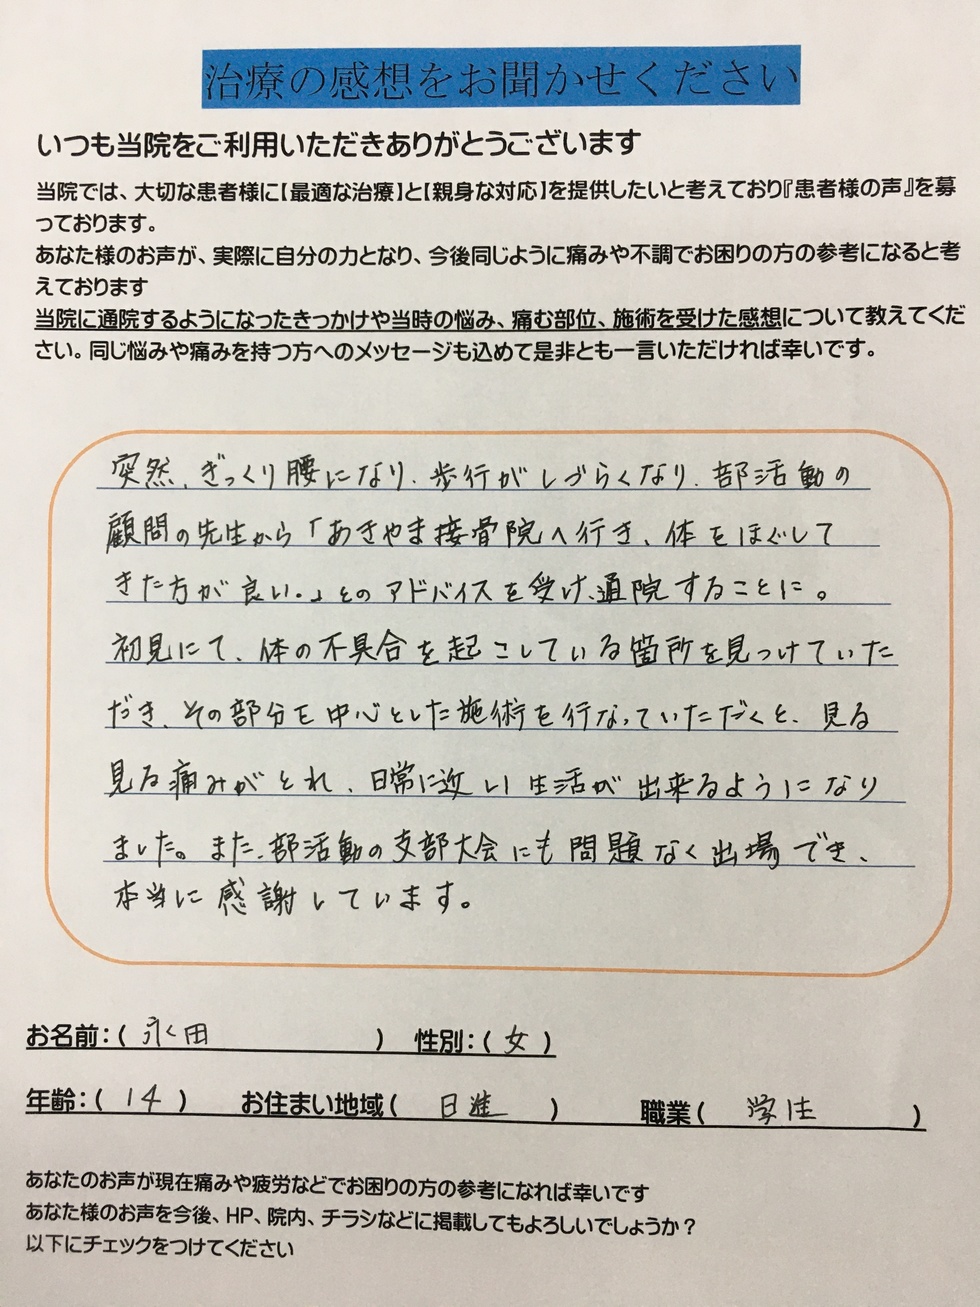 治療の感想をお聞かせください
いつも当院をご利用いただきありがとうございます
当院では、大切な患者様に【最適な治療】と【親身な対応】を提供したいと考えており『患者様の声』を募
っております。
あなた様のお声が、実際に自分の力となり、今後同じように痛みや不調でお困りの方の参考になると考
えております
当院に通院するようになったきっかけや当時の悩み、痛む部位、施術を受けた感想について教えてくだ
さい。同じ悩みや痛みを持つ方へのメッセージも込めて是非とも一言いただければ幸いです。
突然、ぎっくり腰になり、歩行がしづらくなり、部活動の
顧問の先生から「あきやま接骨院へ行き、体をほぐして
きた方が良い。」とのアドバイスを受け、通院することに。
初見にて、体の不具合を起こしている箇所を見つけていた
だき、その部分を中心とした施術を行なっていただくと、見る
見る痛みがとれ、日常に近い生活が出来るようになり
ました。また、部活動の支部大会にも問題なく出場でき、
本当に感謝しています。
お名前：( 永田 ) 性別：( 女 )
年齢：( 14 ) お住まい地域( 日進 ) 職業( 学生 )
あなたのお声が現在痛みや疲労などでお困りの方の参考になれば幸いです
あなた様のお声を今後、HP、院内、チラシなどに掲載してもよろしいでしょうか？
以下にチェックをつけてください